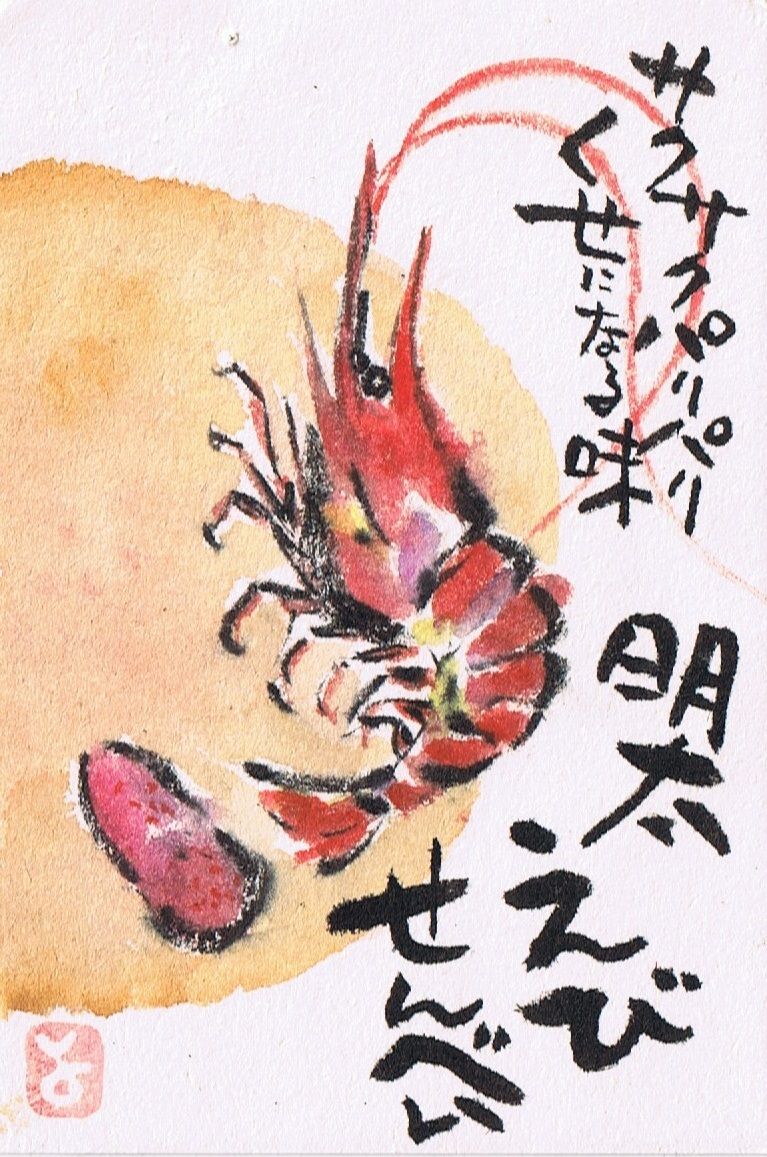 サクサクパリパリ
くせになる味
明太
えび
せんべい
とよ